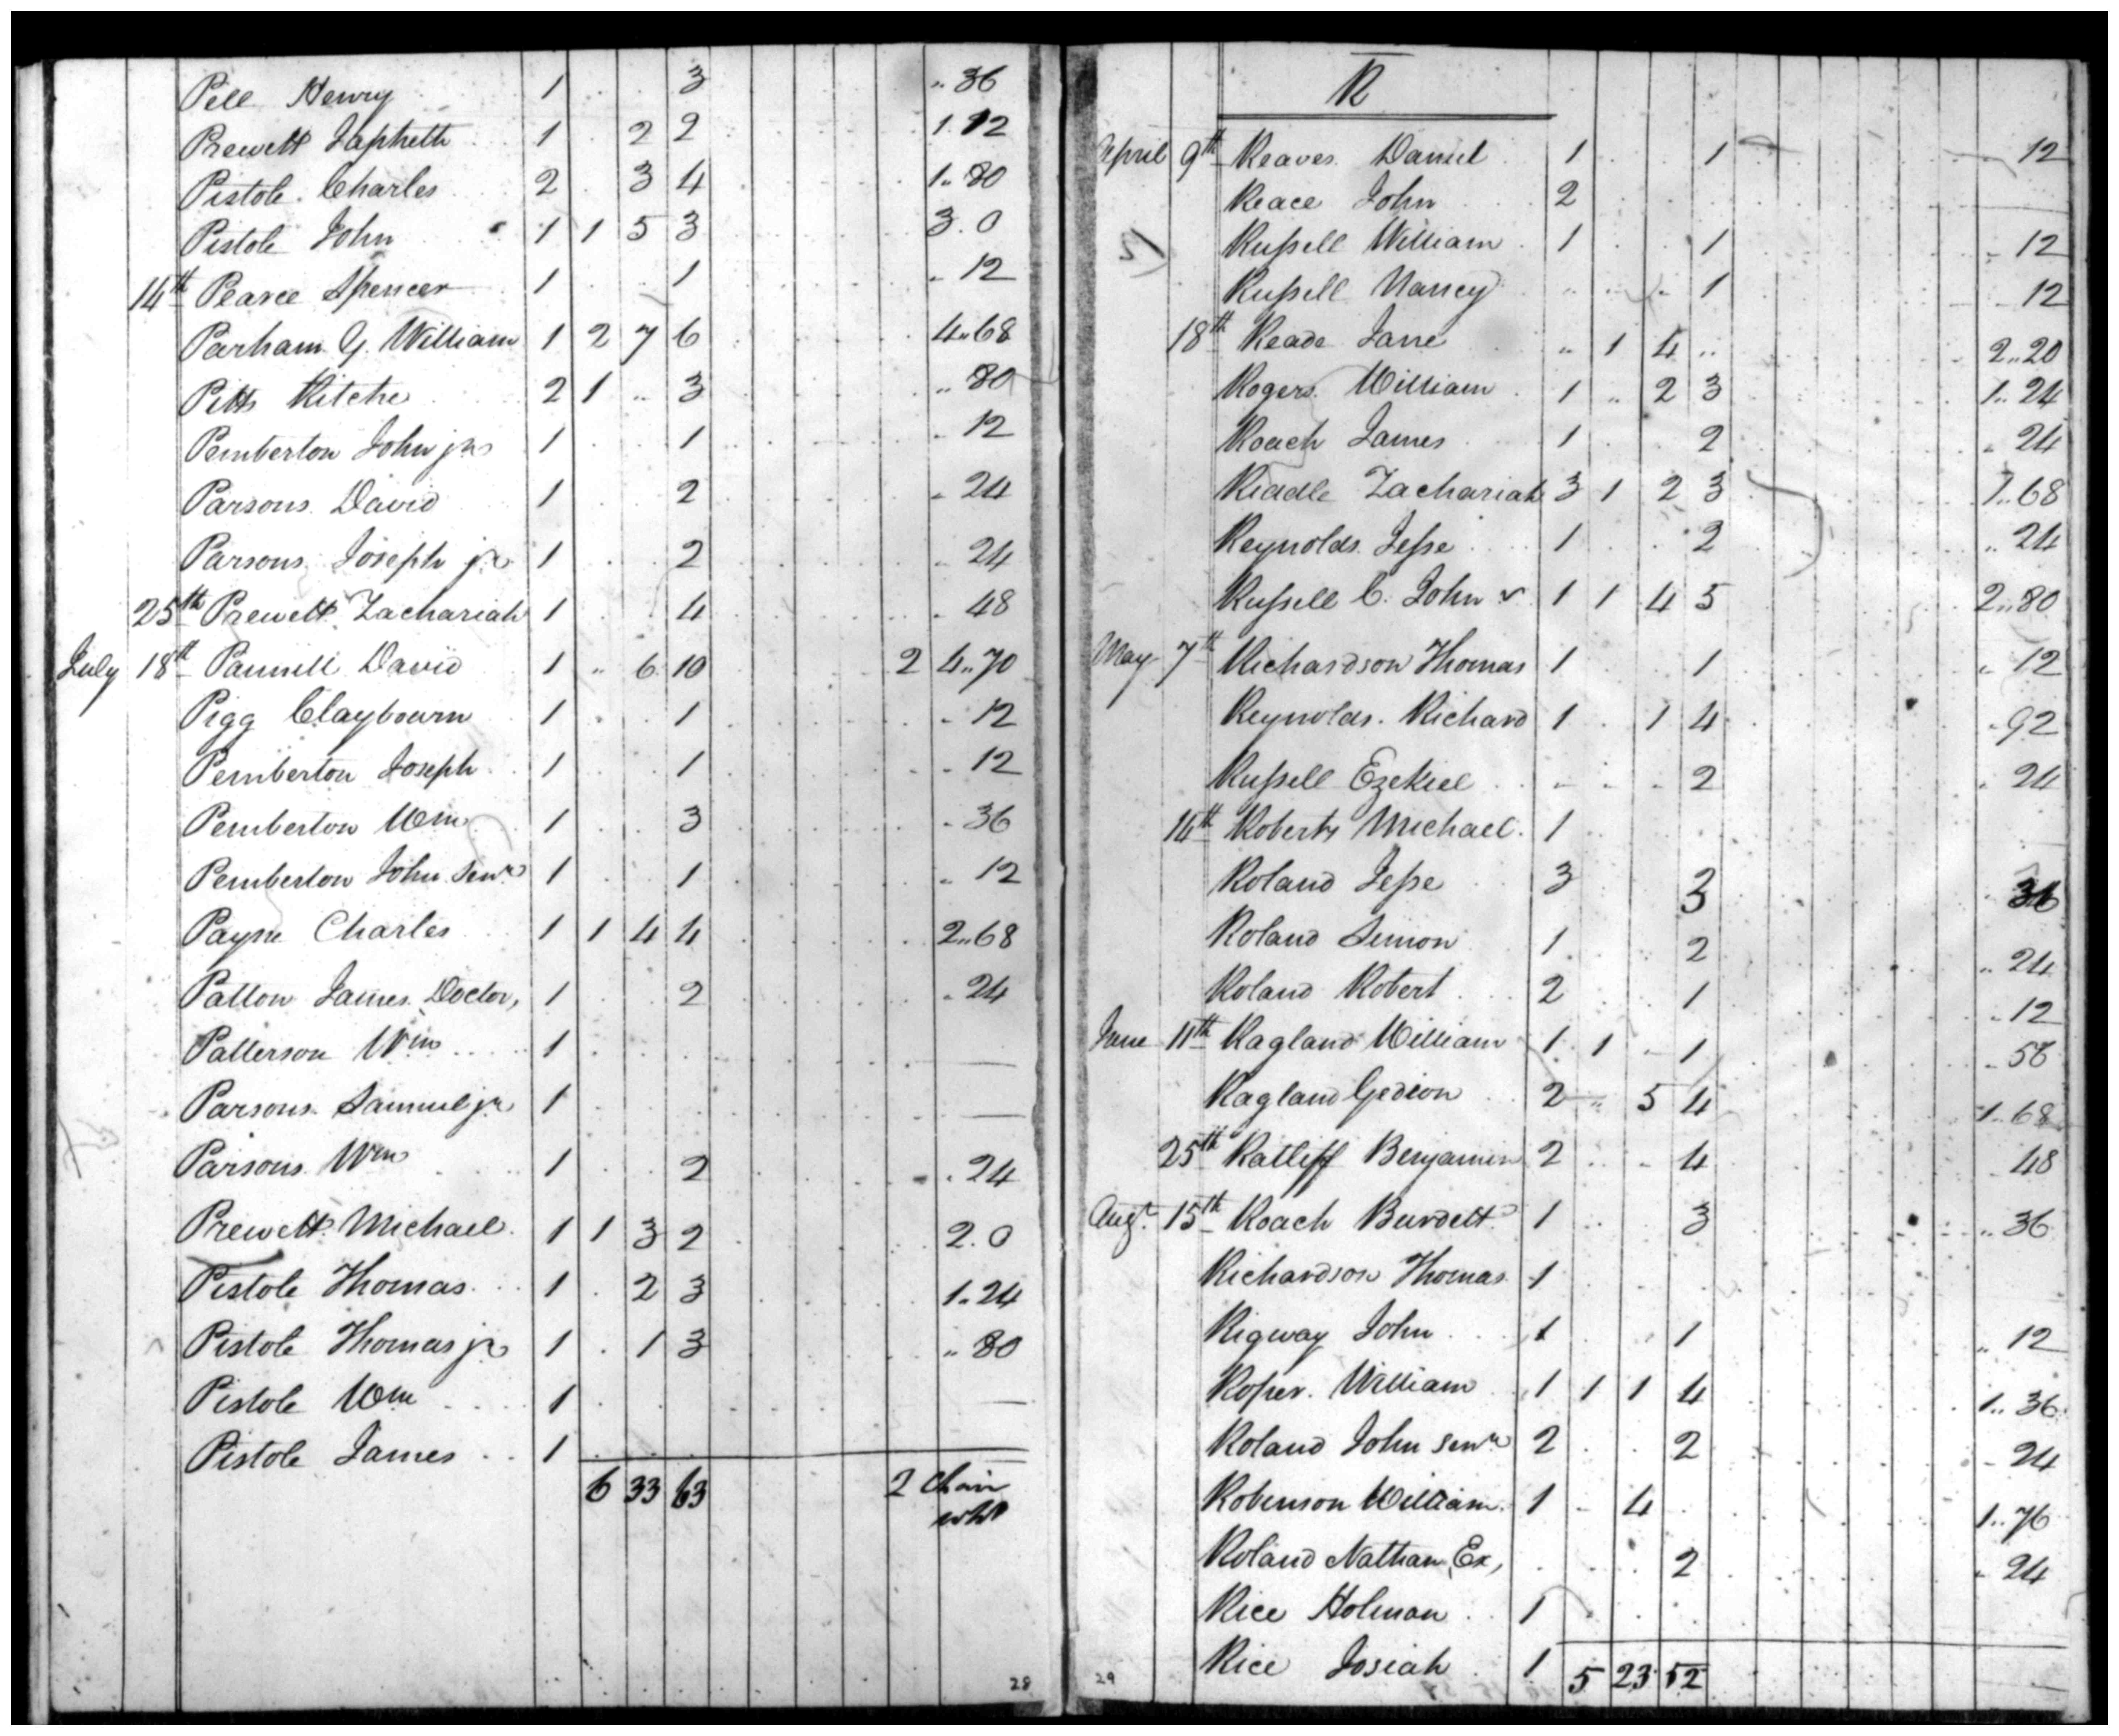 Pell Henry 1 . . 3 .. 36
Prewett Japheth 1 . 2 2 1.12
Pistole Charles 2 . 3 4 1.. 80
Pistole John 1 1 5 3 3.0
14th Pearce Spencer 1 . . 1 .. 12
Parham G. William 1 2 7 6 4..68
Pitts Ritche 2 1 .. 3 .. 80
Pemberton John jr 1 . . 1 .. 12
Parsons David 1 . . 2 .. 24
Parsons Joseph jr 1 . . 2 .. 24
25th Prewett Zachariah 1 . . 4 .. 48
July 18th Pannill David 1 .. 6 10 2 4..70
Pigg Claybourn 1 . . 1 .. 12
Pemberton Joseph 1 . . 1 .. 12
Pemberton Wm 1 . . 3 .. 36
Pemberton John Senr 1 . . 1 .. 12
Payne Charles 1 1 4 4 2..68
Patton James Doctor, 1 . . 2 .. 24
Patterson Wm 1
Parsons Samuel jr 1
Parsons Wm 1 . . 2 .. 24
Prewett Michael 1 1 3 2 2.0
Pistole Thomas 1 . 2 3 1..24
Pistole Thomas jr 1 . 1 3 .. 80
Pistole Wm 1
Pistole James 1
6 33 63 2 Chair
28
R
April 9th Reaves Daniel 1 . . 1 12
Reace John 2
Russell William 1 . . 1 .. 12
Russell Nancy .. .. .. 1 .. 12
18th Reade Jane .. 1 4 .. 2..20
Rogers William 1 .. 2 3 1..24
Roach James 1 . . 2 .. 24
Riddle Zachariah 3 1 2 3 1..68
Reynolds Jesse 1 . . 2 .. 24
Russell C. John 1 1 4 5 2..80
May 7th Richardson Thomas 1 . . 1 .. 12
Reynolds Richard 1 . 1 4 .. 92
Russell Ezekiel . . . 2 .. 24
14th Roberts Michael 1
Roland Jesse 3 . . 3 36
Roland Simon 1 . . 2 .. 24
Roland Robert 2 . . 1 .. 12
June 11th Ragland William 1 1 .. 1 .. 56
Ragland Gedeon 2 .. 5 4 1..68
25th Ratliff Benjamin 2 . . 4 48
Augt 15th Roach Burdett 1 . . 3 .. 36
Richardson Thomas 1
Rigway John 1 . . 1 .. 12
Roper William 1 1 1 4 1..36
Roland John Senr 2 . . 2 .. 24
Robinson William 1 .. 4 1..76
Roland Nathan Ex, . . . 2 .. 24
Rice Holman 1
Rice Josiah 1
5 23 52
29